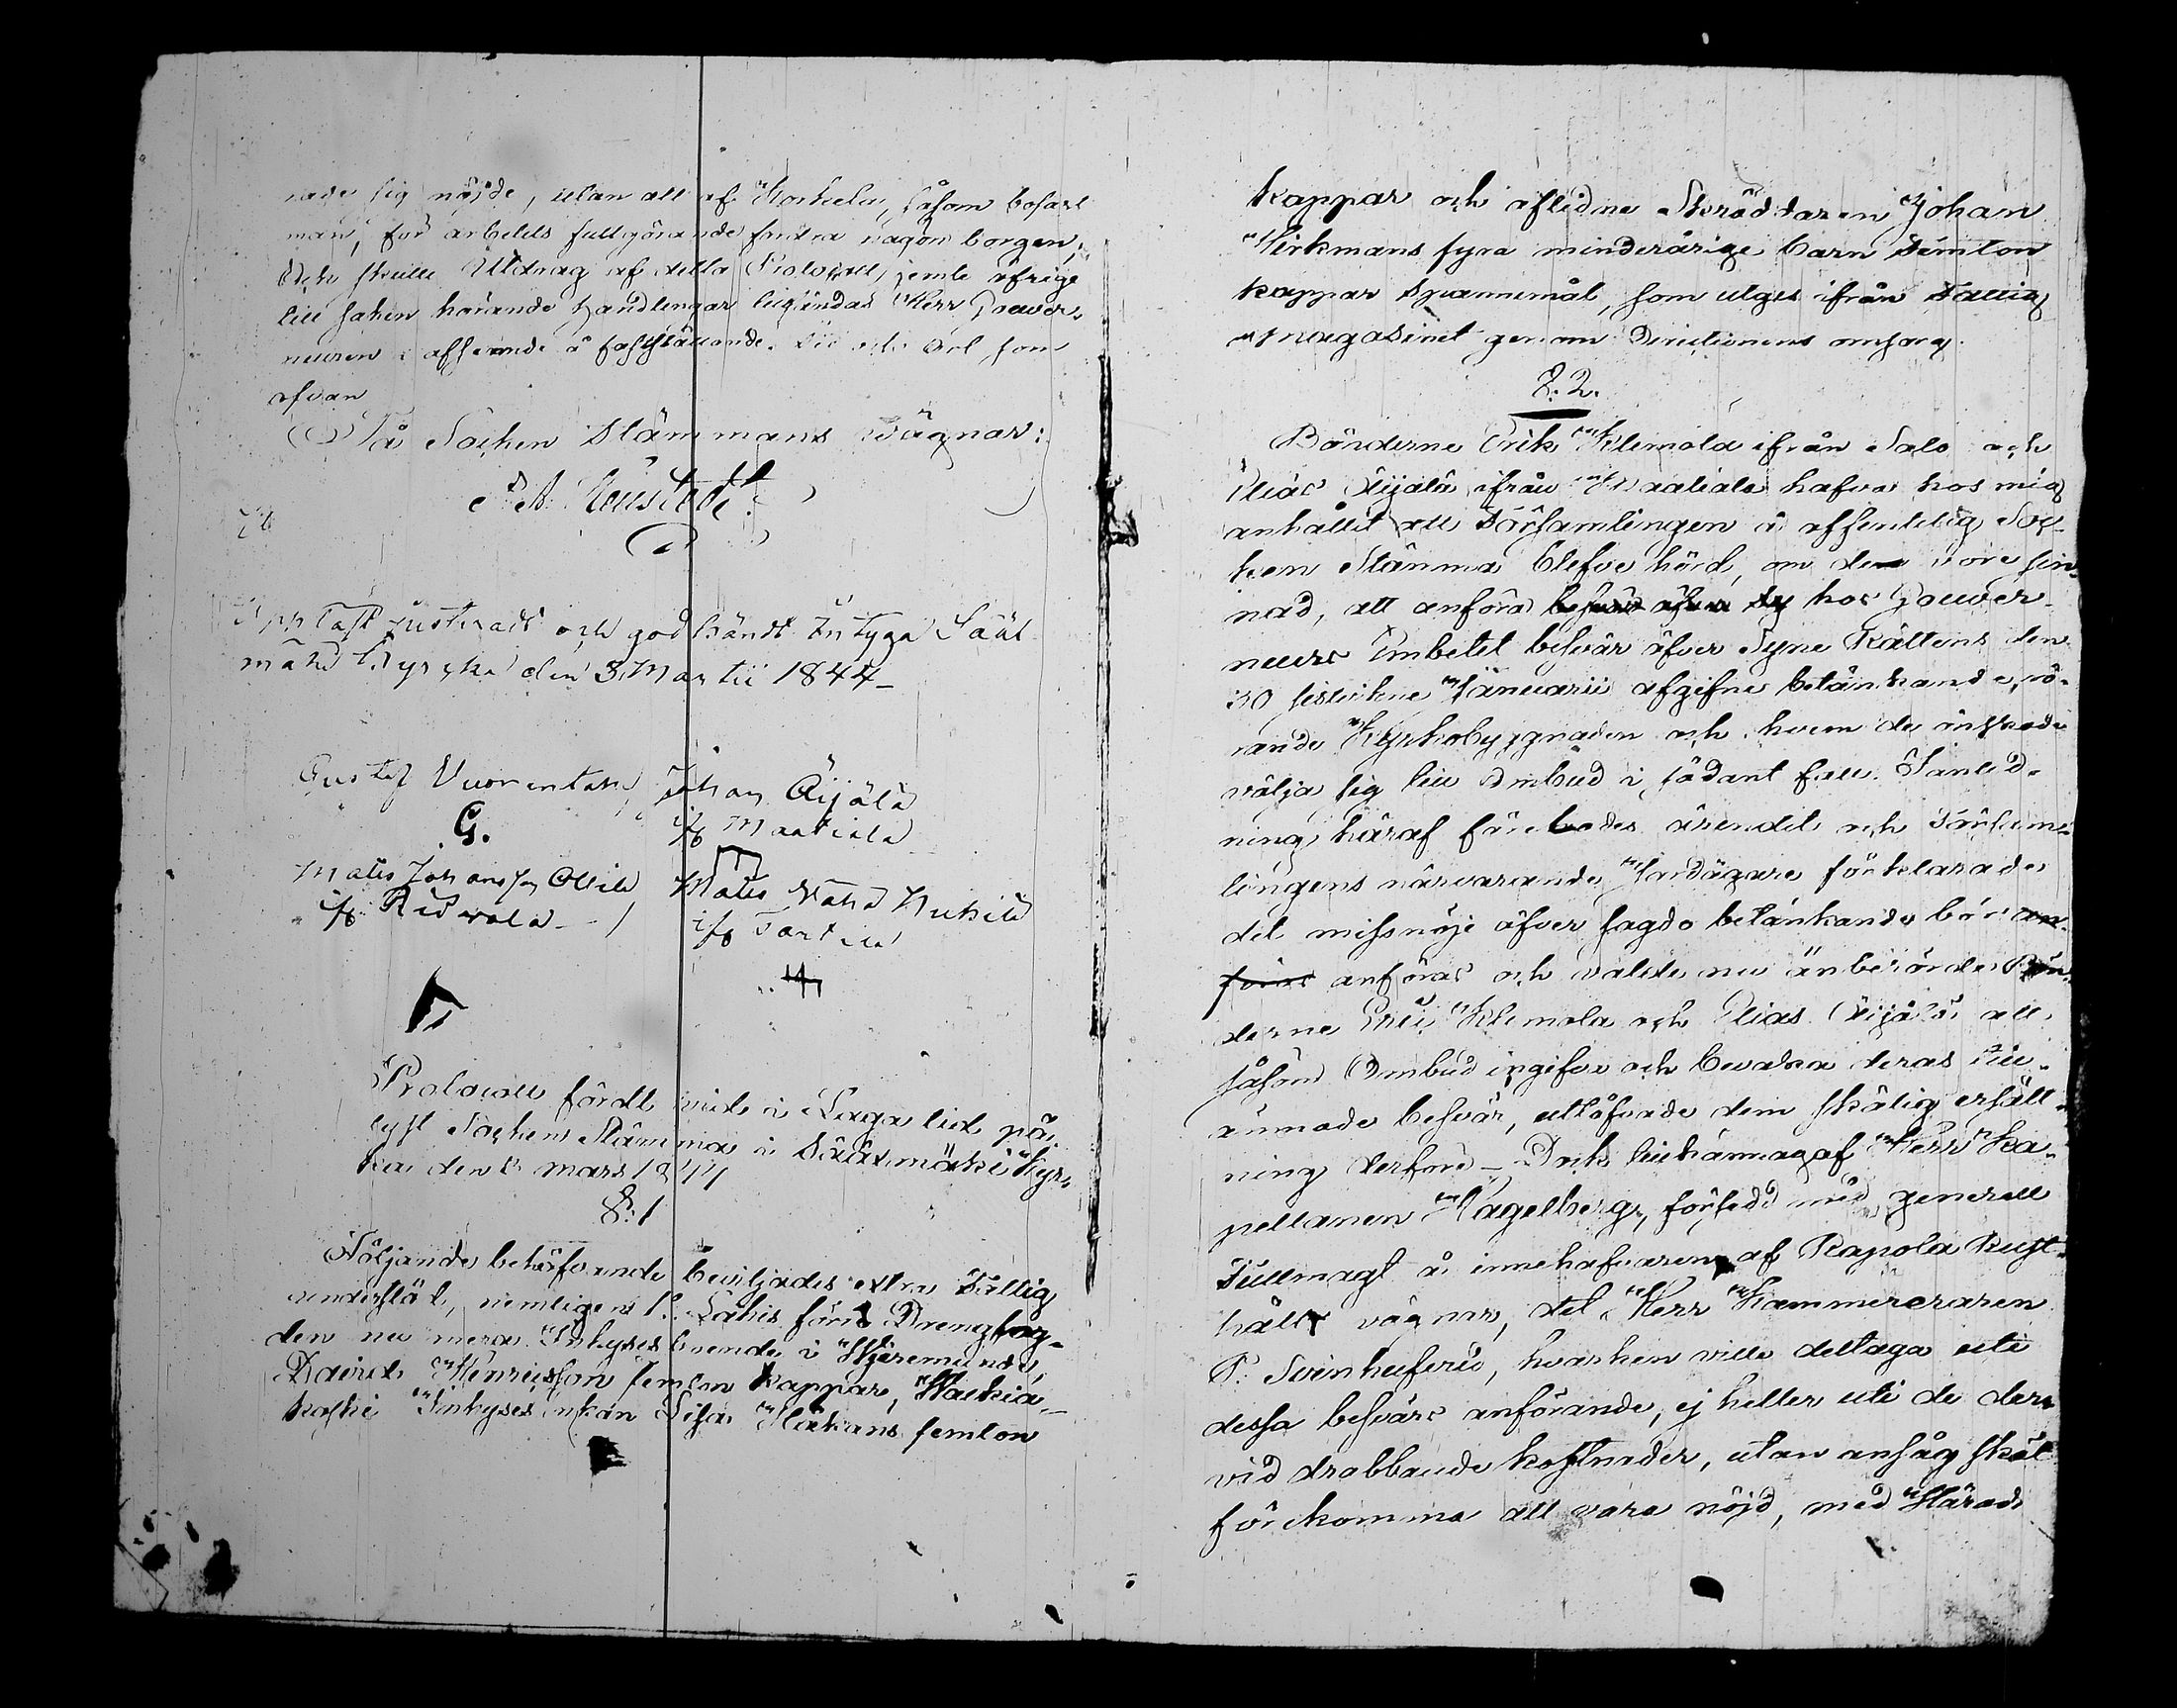 rade sig nöjde, utan att af Korkela, såsom bofast
man, för arbetets fullgörande fordra någon borgen;
Och skulle Utdrag af detta Protocoll, jemte öfrige
till saken hörande handlingar tillsändas Herr Gouver-
neuren i afseende å fastställande. Tid och ort som
ofvan
På Socken Stämmans vägnar:
Uppläst justeradt och godkändt intyga Sääx
mäki Kyrcka den 3 Martii 1844
Gustaf Vuorentaka Johan Äijälä
G. ifr Maatiala
Mats Johansson Ollila Matts Nukila
ifr Ridvala ifr Tarttila
Protocoll fördt vid i Laga tid på-
lyst Sockene Stämma i Sääxmäki Kyr-
ka den 3 Mars 1844
§. 1
Följande behöfvande beviljades extra Fattig
understöd, nemligen 1: Lahis förre Dreng
den nu mera Inhyses boende i Hjeremundi
David Henricsson femton kappar, Waekia-
koski Inhyses enkan Lisa Håkans femton
kappar och aflidne Skräddaren Johan
Hirkmans fyra minderårige barn femton
kappar Spannemål, som utges ifrån Fattig
magasinet genom Directionens omsorg.
§. 2.
Bönderne Erik Klemola ifrån Salo och
Elias Äijälä ifrån Maatiala hafva hos mig
anhållit att Församlingen å offentelig Soc-
ken Stämma blefve hörd, om den vore sin-
nad, att anföra besvär öfver hos Gouver-
neurs Embetet besvär öfver Syne Rättens den
30 sistvikne Januarii afgifne betänkande, rö-
rande Kyrkobyggnaden och hvem de önskade
välja sig till Ombud i sådant fall. I anled-
ning häraf föredrogs ärendet och Församl-
lingens närvarande Jordägare förklarade
det missnöje öfver sagde betänkande bör an-
föras anföras och valde nu änberörde Bön-
derne Erik Klemola och Elias Äijälä att
såsom Ombud ingifva och bevaka deras till-
ärnade besvär, utlofvade dem skälig ersätt-
ning derföre - Dock tillkännagaf Herr Ka-
pellanen Hagelberg, försedd med generell
Fullmagt å innehafvaren af Rapola Rust-
håll vägnar, det Herr Kammereraren
P. Svinhufvud, hvarken ville deltaga uti
dessa besvärs anförande, ej heller uti de der-
vid drabbande kostnader, utan ansåg skäl
förekomma att vara nöjd, med Härads